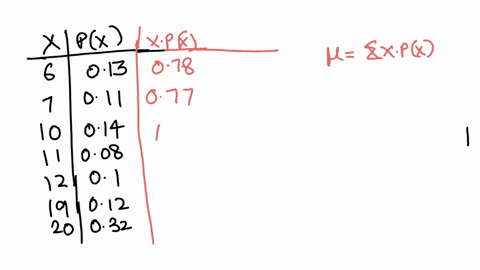 X P(X) X.P(X)
μ= ΣX.P(X)
6 0.13 0.78
7 0.11 0.77
10 0.14 1
11 0.08
12 0.1
19 0.12
20 0.32